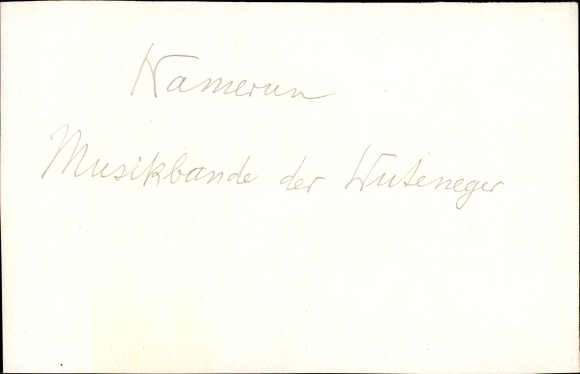 Kamerun
Musikbande der Wuteneger